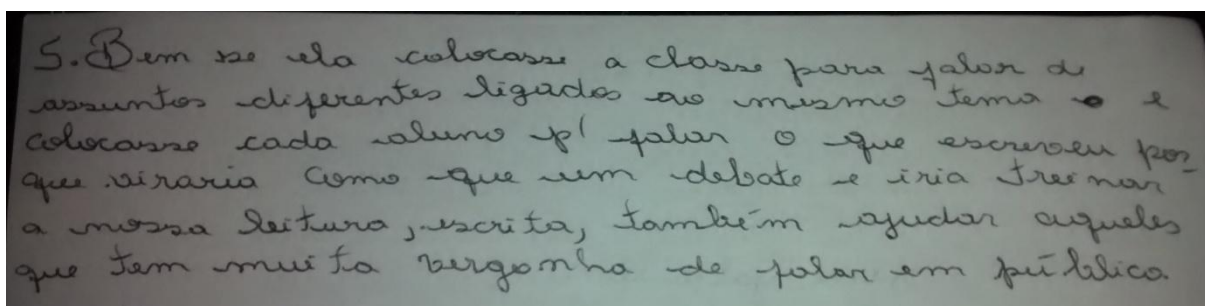 5. Bem se ela colocasse a classe para falar de
assuntos diferentes ligados ao mesmo tema e
colocasse cada aluno p/ falar o que escreveu por-
que viraria como que um debate e iria treinar
a nossa leitura, escrita, também ajudar aqueles
que tem muita vergonha de falar em público